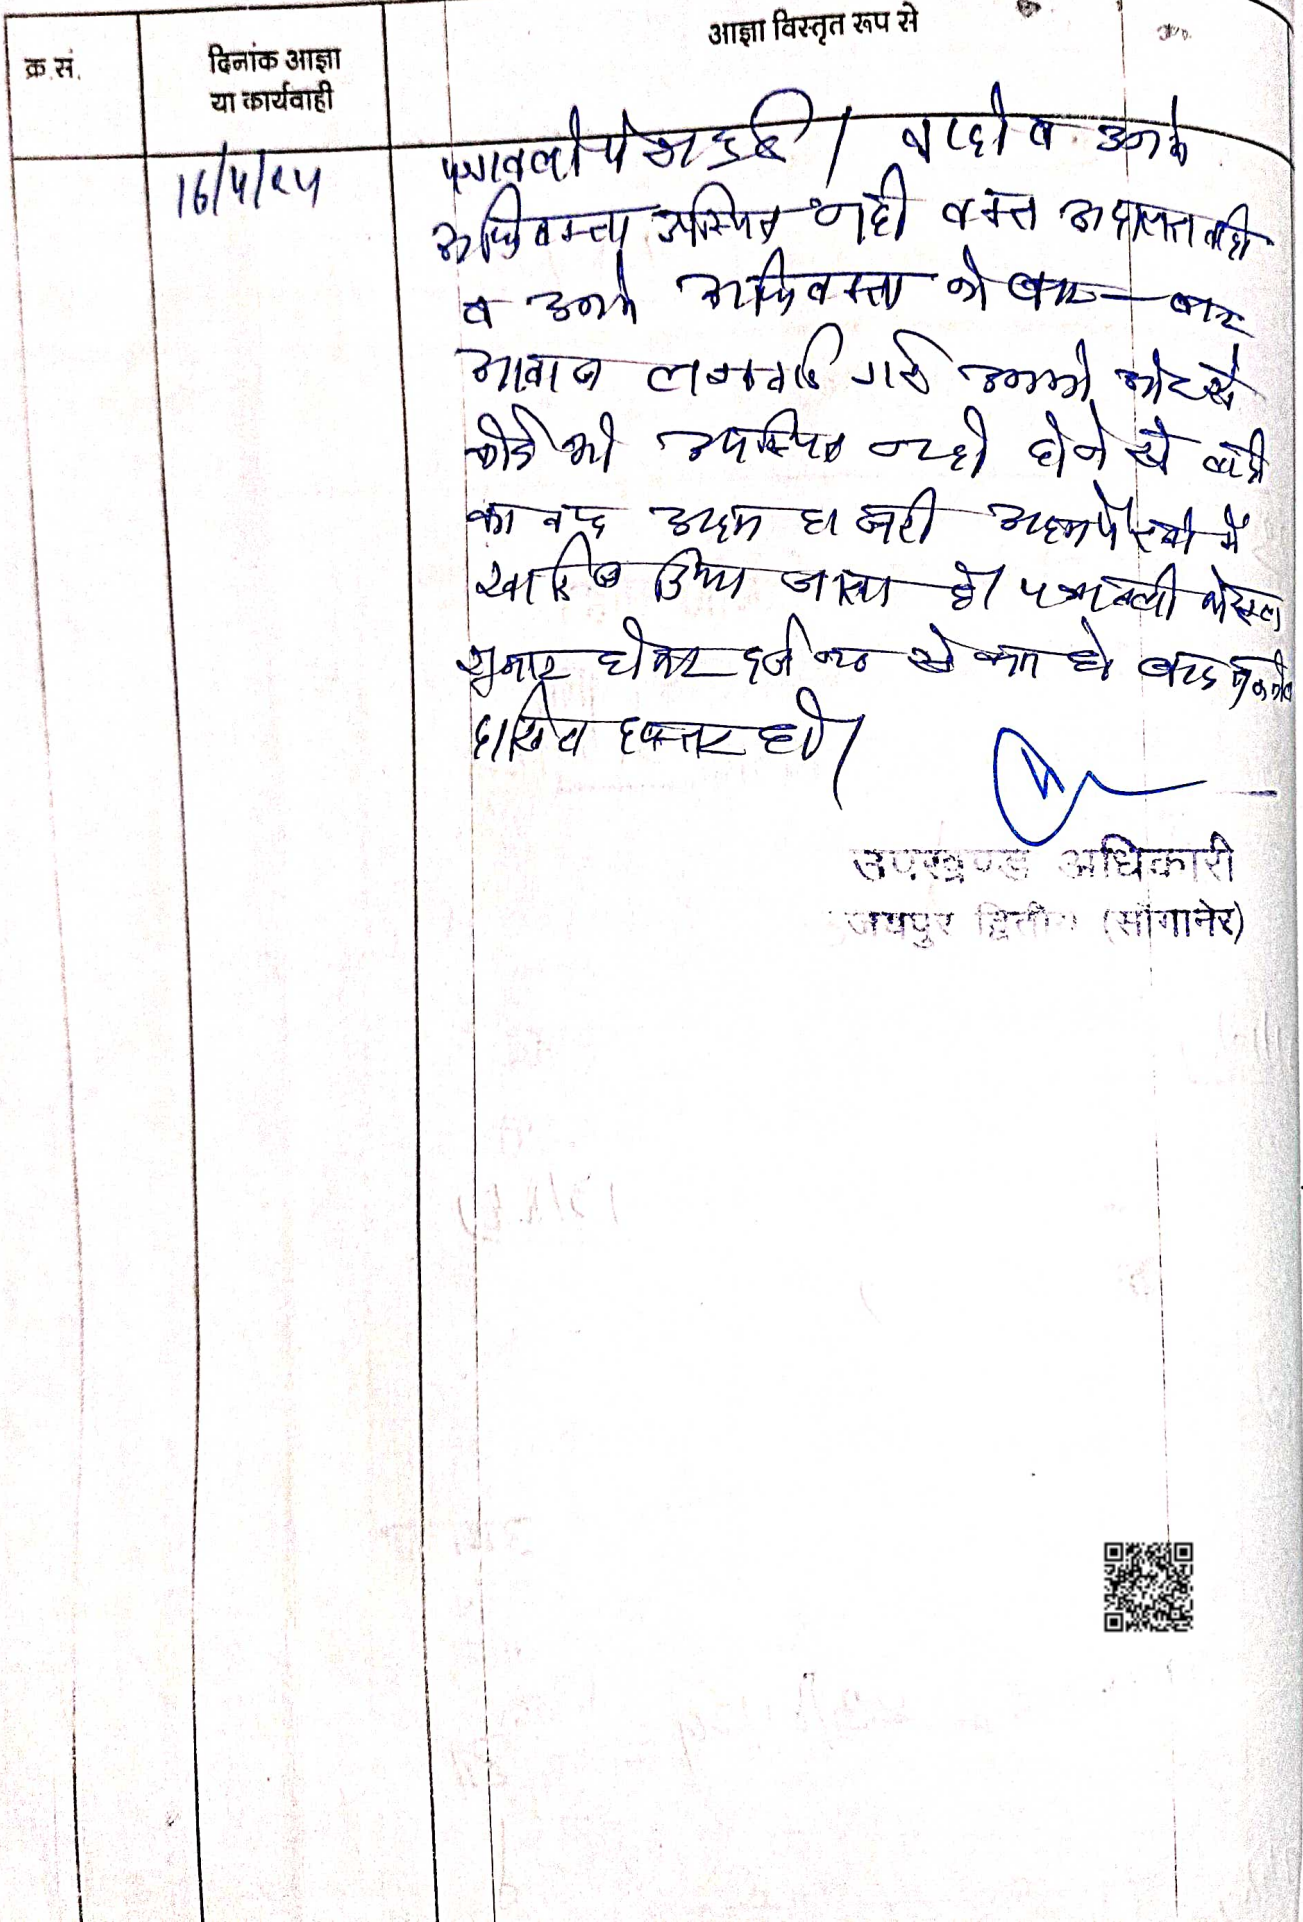 क्र.सं.
दिनांक आज्ञा
या कार्यवाही
आज्ञा विस्तृत रूप से
16/4/24
पत्रावली पेश हुई। वादी व उनके
अधिवक्ता उपस्थित नही वक्त अदालत वादी
व उनके अधिवक्ता को बार-बार
आवाज लगवाई गई उनकी ओर से
कोई भी उपस्थित नही होने से वादी
का वाद अदम हाजरी अदम पैरवी में
खारिज किया जाता है। पत्रावली फैसल
शुमार होकर दर्ज न० से कम हो बाद
दाखिल दफ्तर हो।
उपखण्ड अधिकारी
जयपुर द्वितीय (सांगानेर)